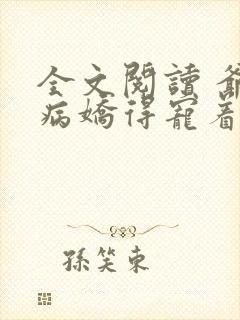 全文閱讀 爺
病嬌得寵着
孫笑東